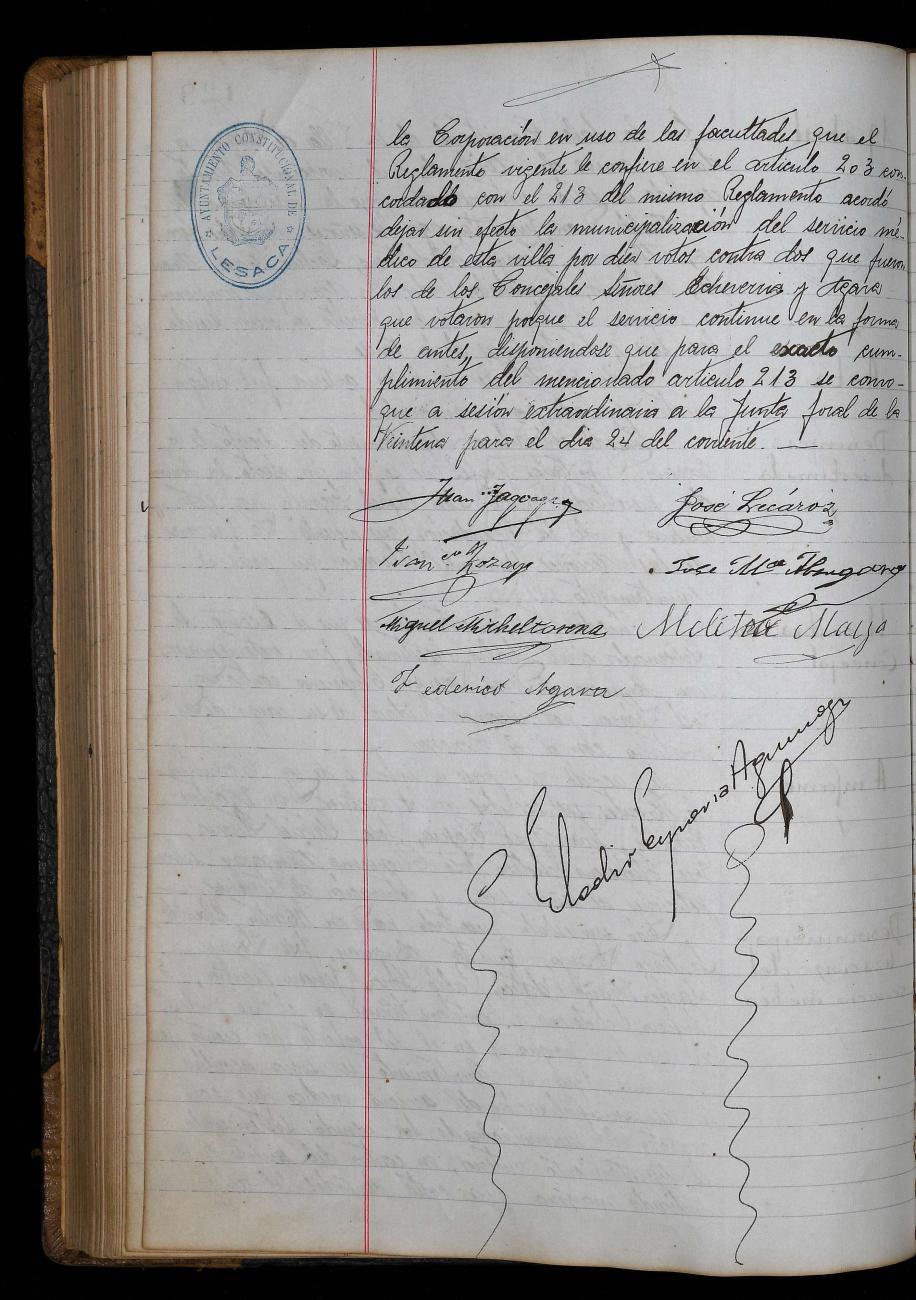 AYUNTAMIENTO CONSTITUCIONAL DE
LESACA
la Corporación en uso de las facultades que el
Reglamento vigente le confiere en el articulo 203 con-
cordado con el 213 del mismo Reglamento acordó
dejar sin efecto la municipalización del servicio mé-
dico de esta villa por diez votos contra dos que fueron
los de los Concejales Señores Echeverria y Agara
que votaron porque el servicio continue en la forma
de antes, disponiendose que para el exacto cum-
plimiento del mencionado articulo 213 se convo-
que a sesión extraordinaria a la Junta foral de la
Veintena para el dia 24 del corriente. —
Juan José Lecároz
Jose Mª
Miguel Micheltorena Maya
Federico Agara
Eladio